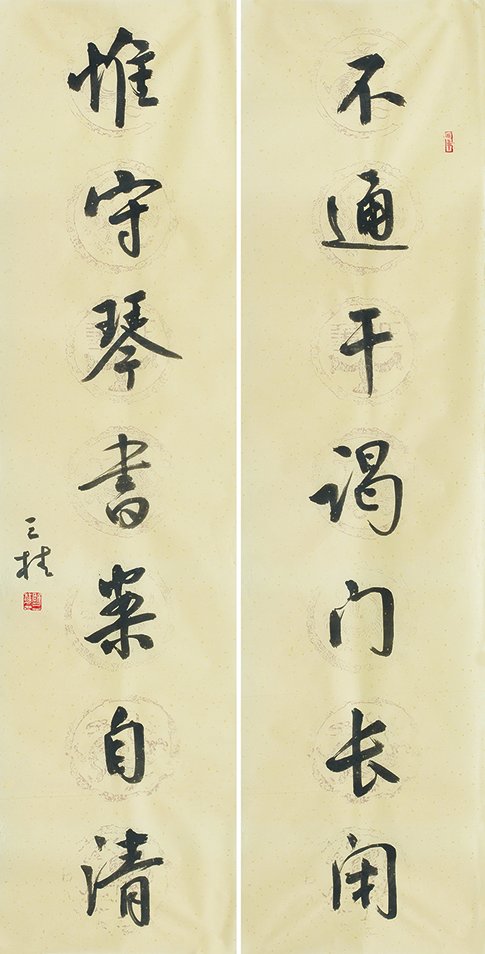 不通干谒门长闭
惟守琴書案自清
三桂